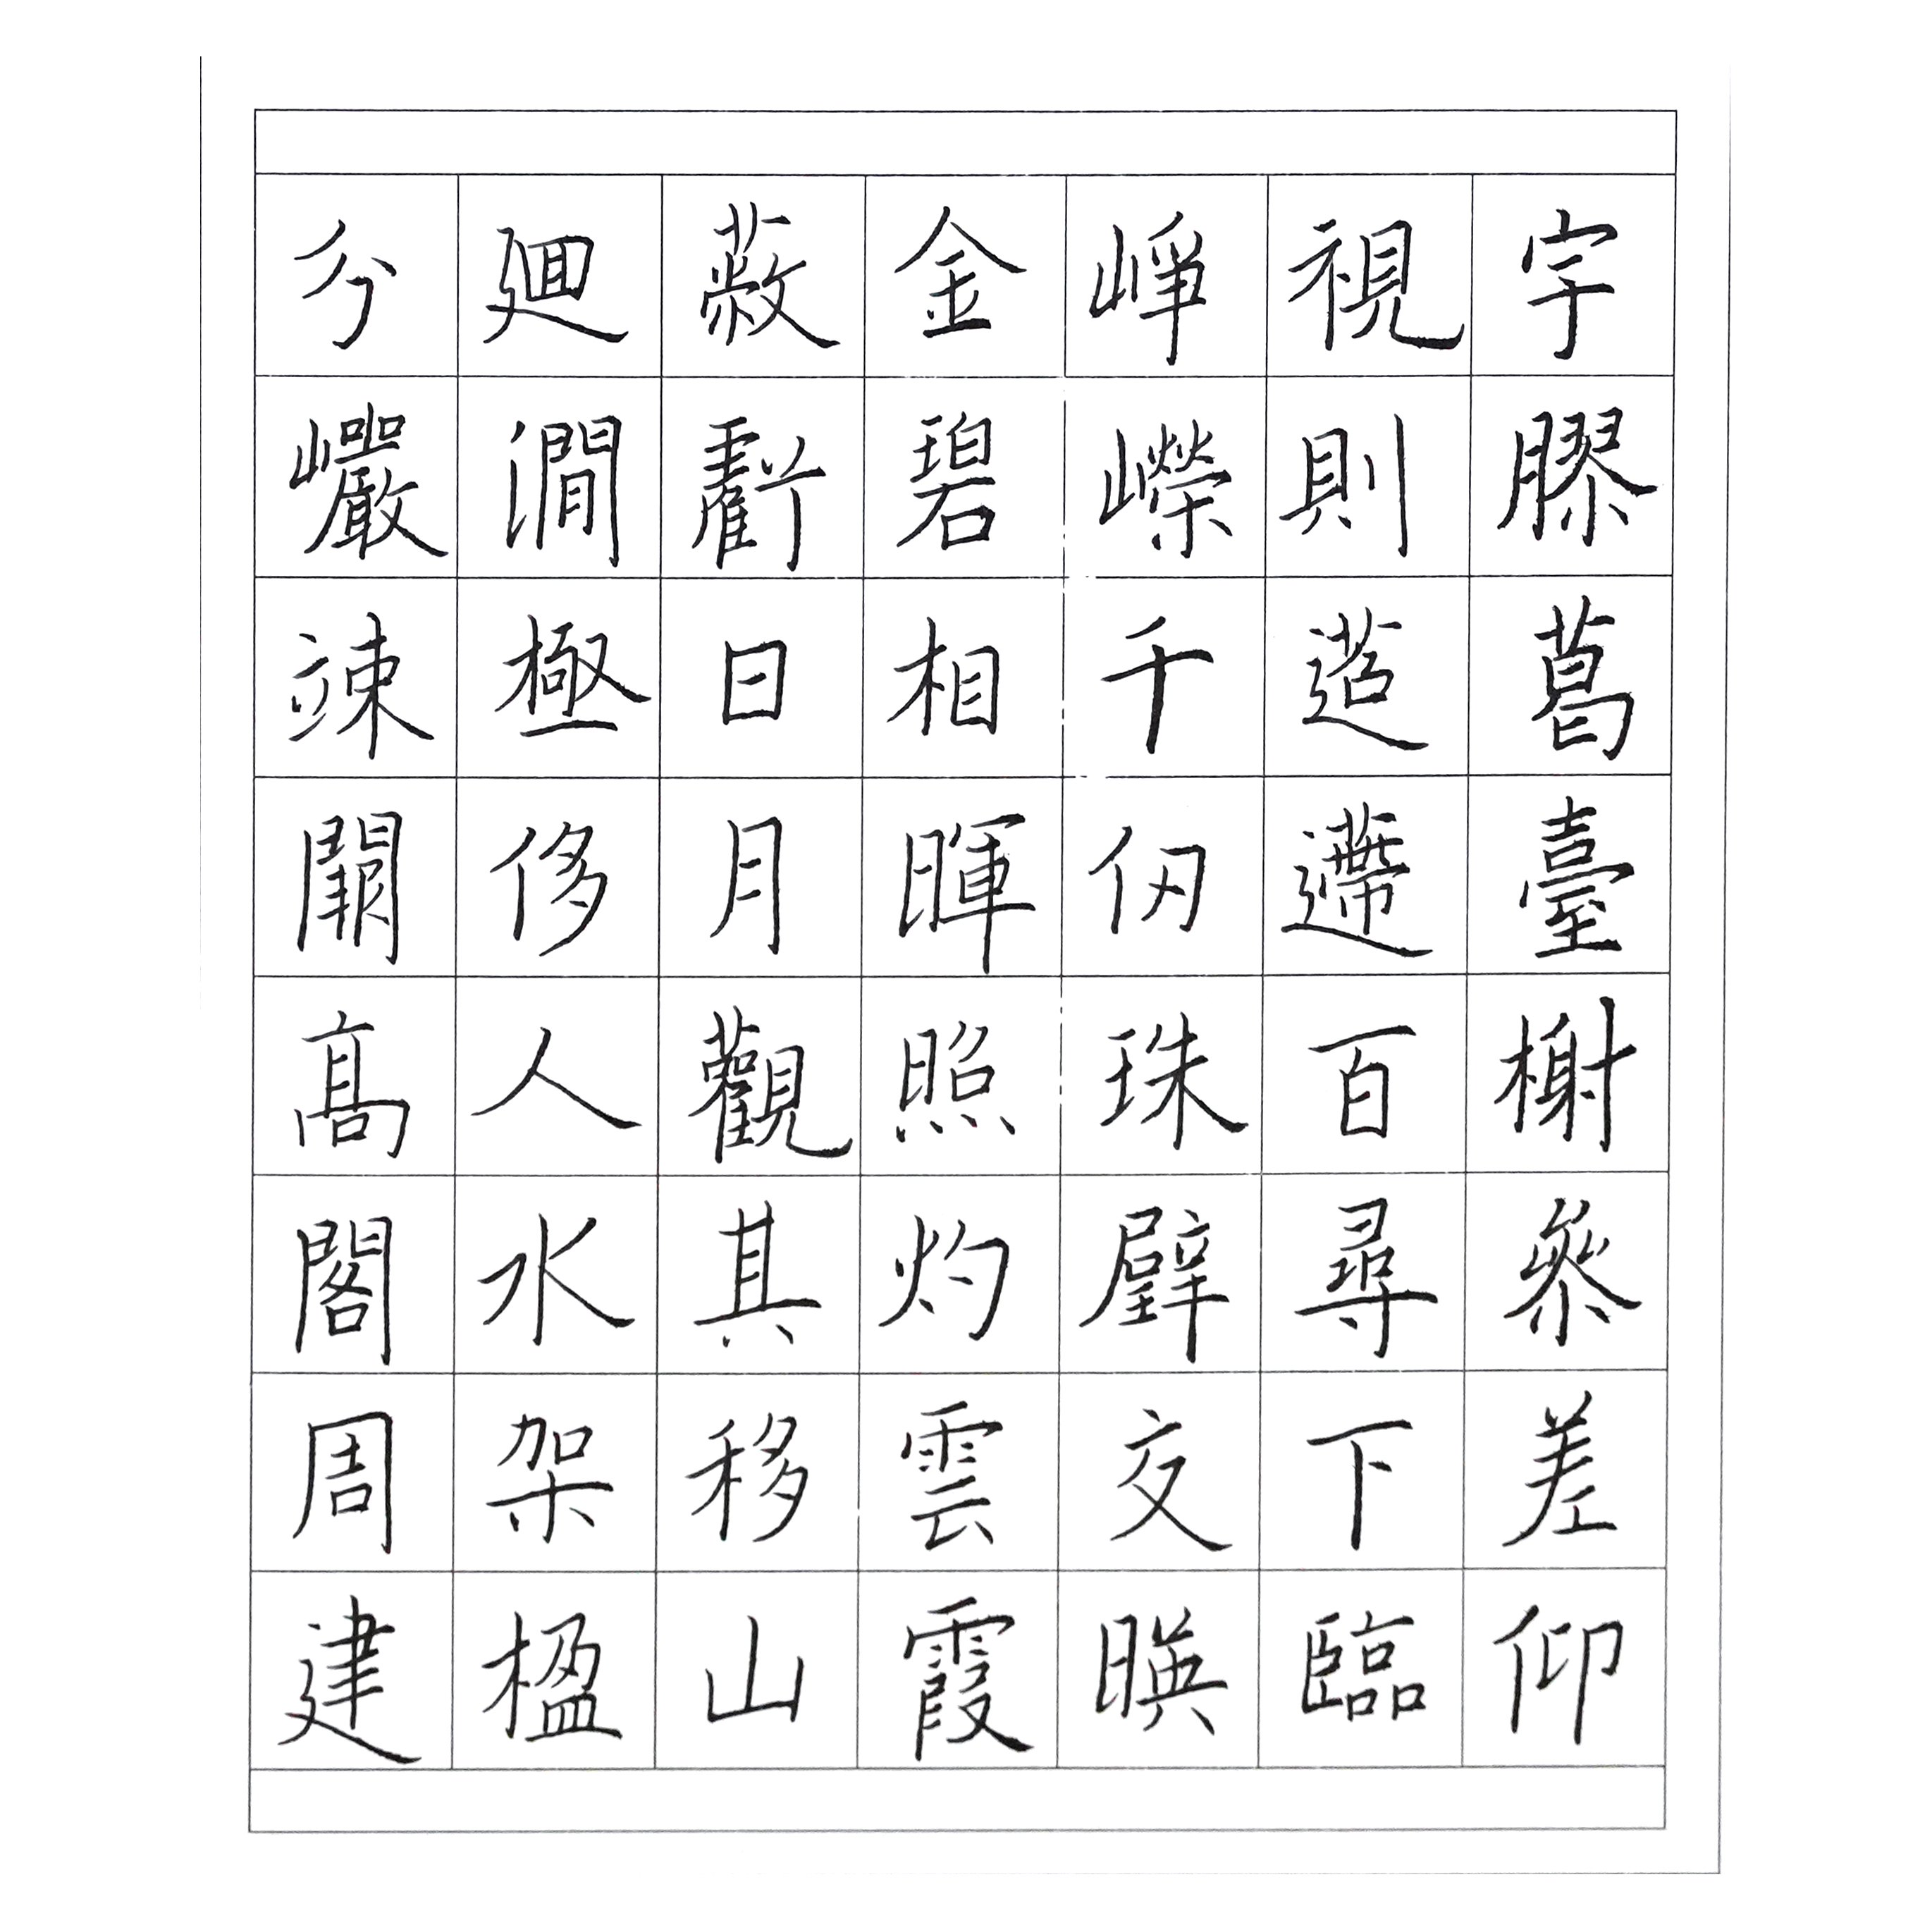 宇膠葛臺榭參差仰
視則迢遰百尋下臨
崢嶸千仞珠璧交暎
金碧相暉照灼雲霞
蔽虧日月觀其移山
廻澗極侈人水架楹
分巗竦闕髙閣周建